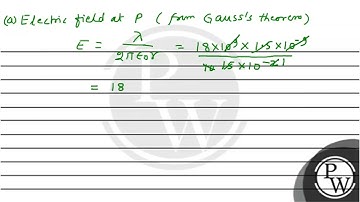 (a) Electric field at P ( from Gauss's theorem)
E = λ / 2πϵ₀r = 18×10⁹ × 1.5×10⁻⁵ / 15×10⁻²
= 18
PW
PW